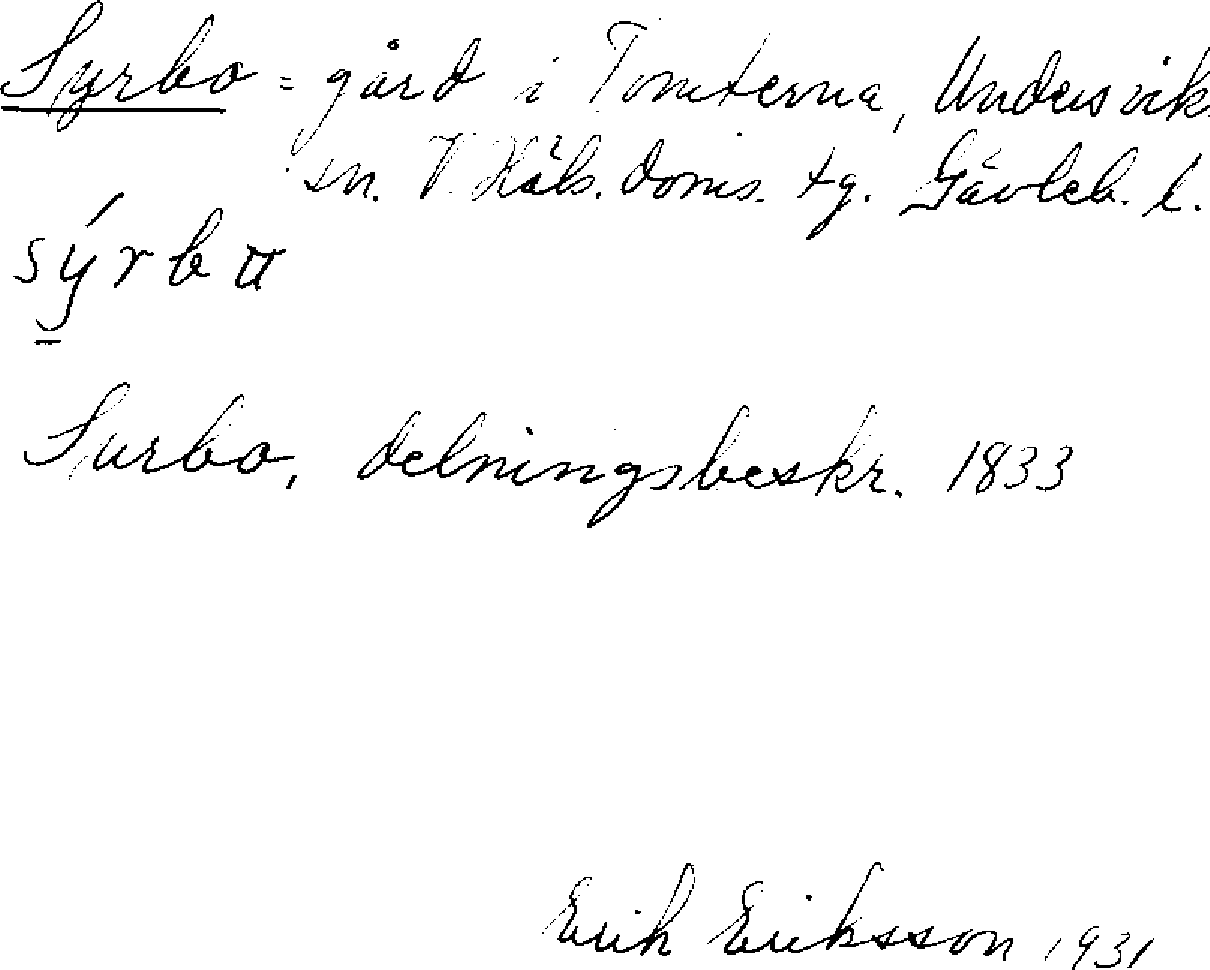 Syrbo = gård i Tomterna, Undersvik.
sn. V. Häls. doms. tg. Gävleb. l.
sýrbɷ
Surbo, delningsbeskr. 1833
Erik Eriksson 1931